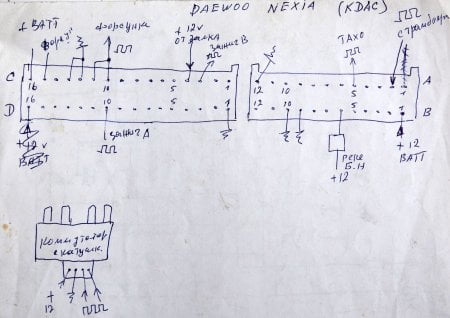 DAEWOO NEXIA (KDAC)
+ ВАТТ
форсунка
+ 12v
от замка
зажиг В
ТАХО
с трамблёра
C
16
10
5
1
12
10
5
1
A
D
16
10
5
1
12
10
5
1
B
+ 12v
ВАТТ
зажиг А
реле
Б.Н
+12
+ 12
ВАТТ
Коммутатор
с катушк.
+
12